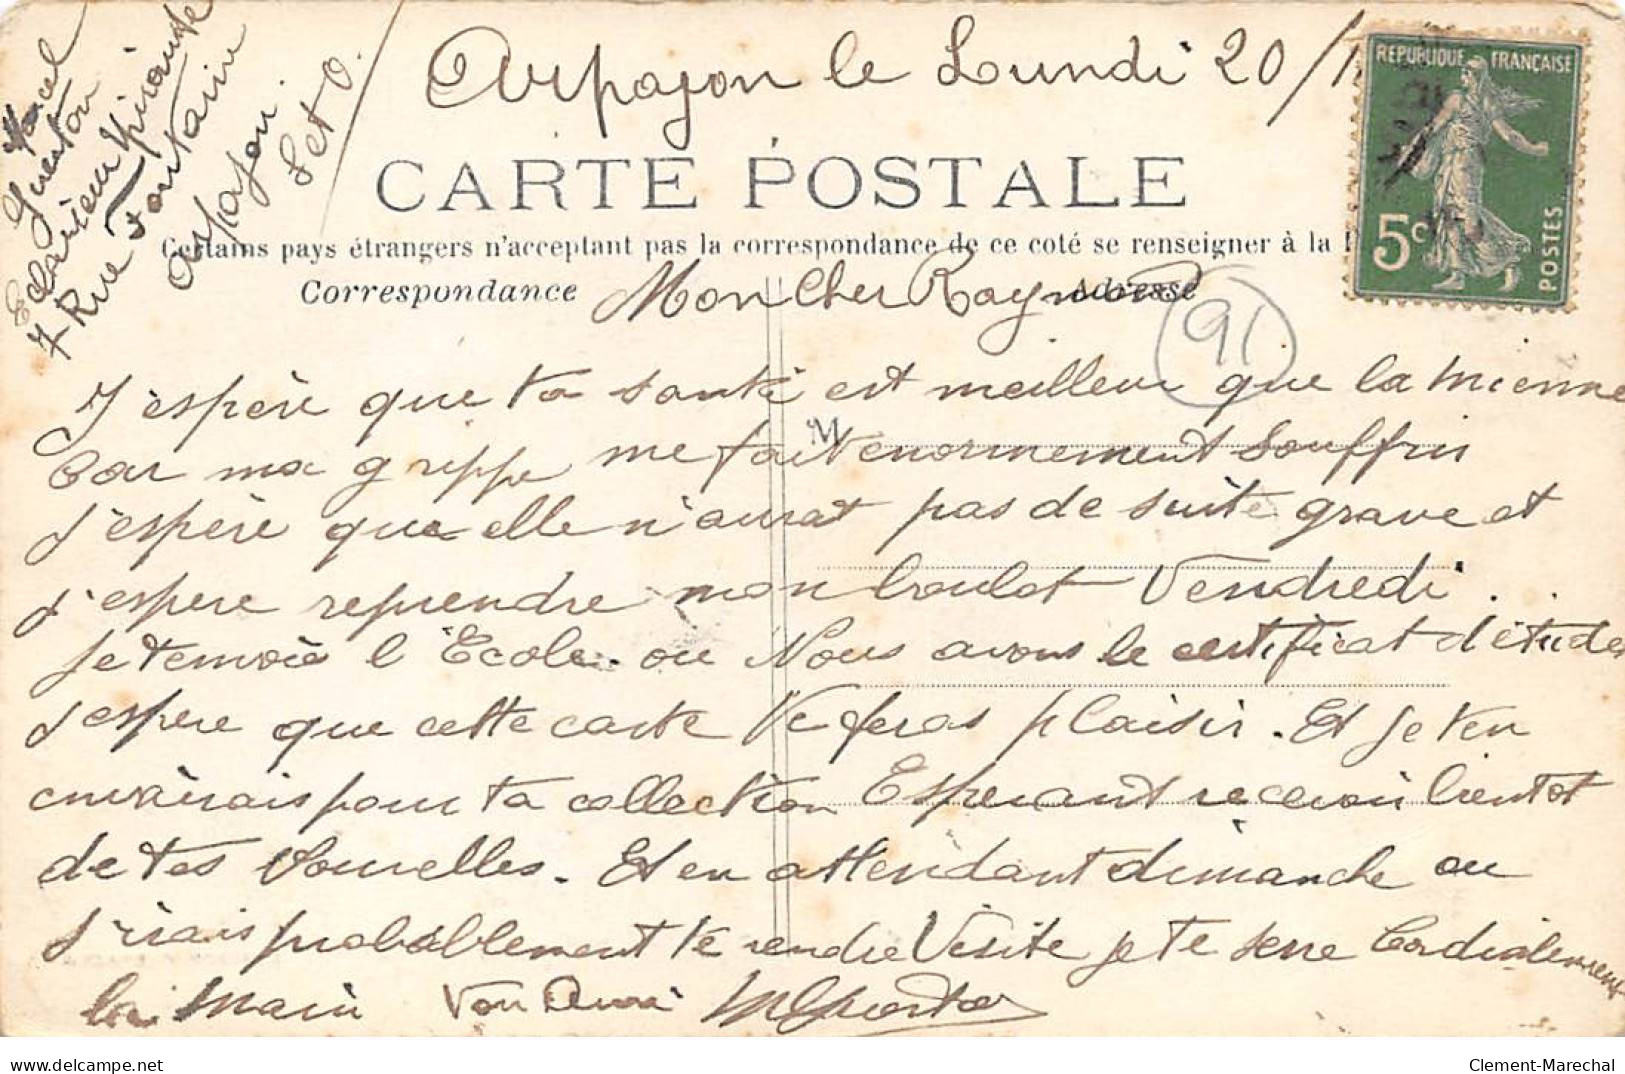 Marcel
Gueston
7 Rue Fontaine
Arpajon.
S et O.
Arpajon le Lundi 20/1
REPUBLIQUE FRANÇAISE
5c
POSTES
CARTE POSTALE
Certains pays étrangers n'acceptant pas la correspondance de ce coté se renseigner à la
Correspondance
Adresse
Mon Cher Raymond
91
J'espère que ta santé est meilleur que la mienne
Car ma grippe me fait enormement souffrir
M
j'espère que elle n'aurat pas de suite grave et
j'espere reprendre mon boulot Vendredi.
Je t'envoie l'Ecole. ou Nous avons le certificat d'étude
j'espere que cette carte te feras plaisir. Et je t'en
envairais pour ta collection Esperant recevoir bientot
de tes Nouvelles. Et en attendant dimanche ou
j'irais probablement te rendre Visite je te serre Cordialement
la Main Ton Ami
Clement-Marechal
delcampe.net